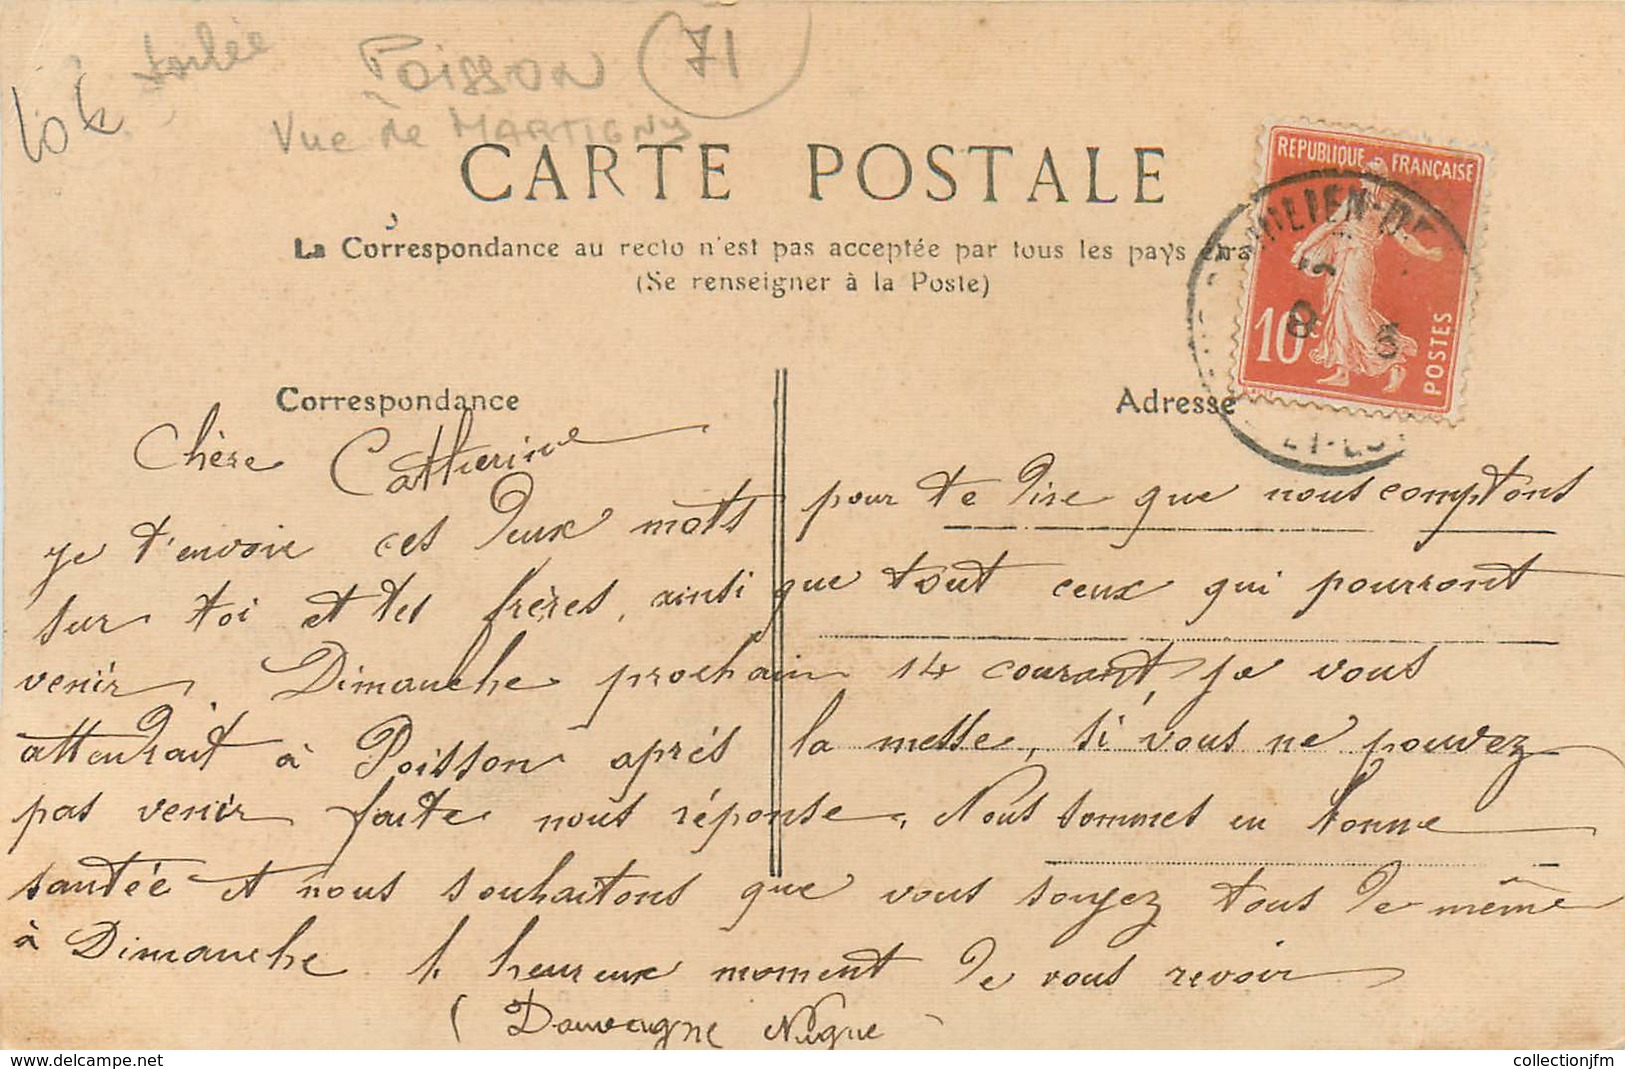 Poisson 71
Vue de MARTIGNY
CARTE POSTALE
REPUBLIQUE FRANÇAISE
10c
POSTES
La Correspondance au recto n'est pas acceptée par tous les pays étra
(Se renseigner à la Poste)
Correspondance
Adresse
Chère Catherine
je t'envoie ces deux mots pour te dire que nous comptons
sur toi et tes frères, ainsi que tout ceux qui pourront
venir. Dimanche prochain 14 courant, je vous
attendrait à Poisson après la messe, si vous ne pouvez
pas venir faite nous réponse. Nous sommes en bonne
santée et nous souhaitons que vous soyez tous de même
à Dimanche l. heureux moment de vous revoir
collectionjfm